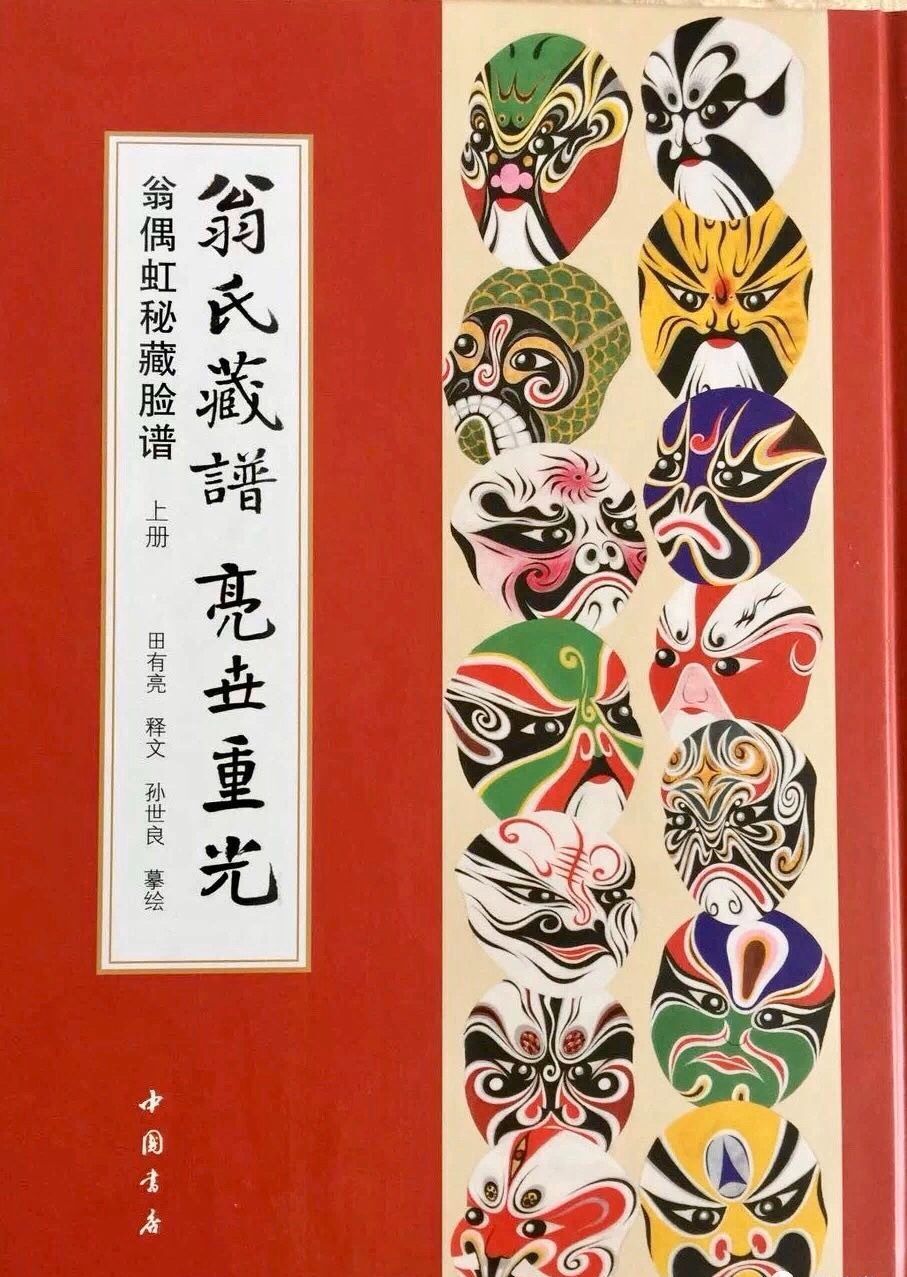 翁氏藏譜 亮世重光
翁偶虹秘藏脸谱 上册
田有亮 释文 孙世良 摹绘
中国书店